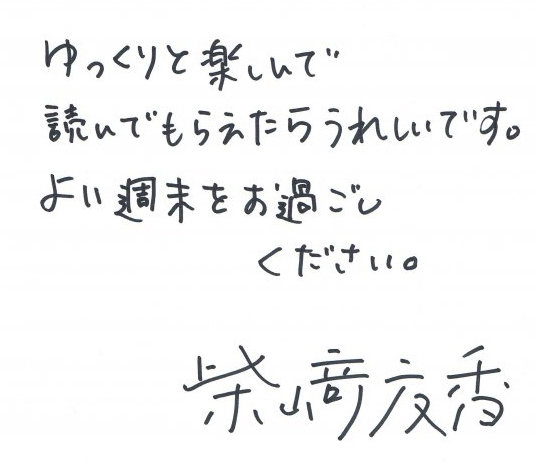 ゆっくりと楽しんで
読んでもらえたらうれしいです。
よい週末をお過ごし
ください。
柴﨑友香